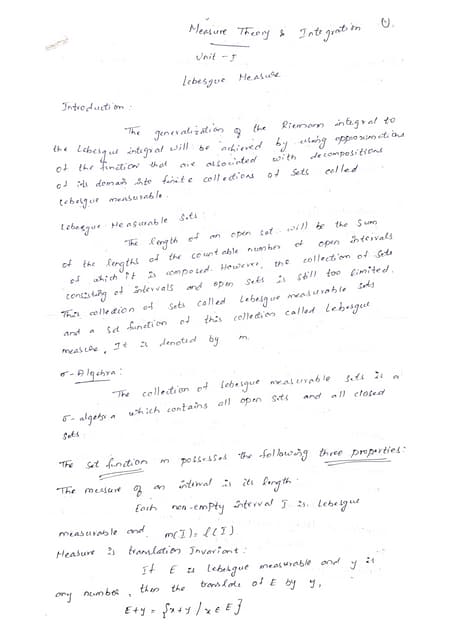 Measure Theory & Integration 1.
Unit - I
Lebesgue Measure
Introduction :
The generalization of the Riemann integral to
the Lebesgue integral will be achieved by using approximations
of the function that are associated with decompositions
of its domain into finite collections of sets called
Lebesgue measurable.
Lebesgue Measurable Sets :
The length of an open set will be the sum
of the lengths of the countable number of open intervals
of which it is composed. However, the collection of sets
consisting of intervals and open sets is still too limited.
This collection of sets called Lebesgue measurable sets
and a set function of this collection called Lebesgue
measure, It is denoted by m.
σ - Algebra :
The collection of Lebesgue measurable sets is a
σ - algebra which contains all open sets and all closed
sets.
The set function m possesses the following three properties:
The measure of an interval is its length.
Each non-empty interval I is Lebesgue
measurable and m(I) = l(I)
Measure is translation Invariant :
If E is Lebesgue measurable and y is
any number, then the translate of E by y,
E+y = {x+y / x ∈ E}